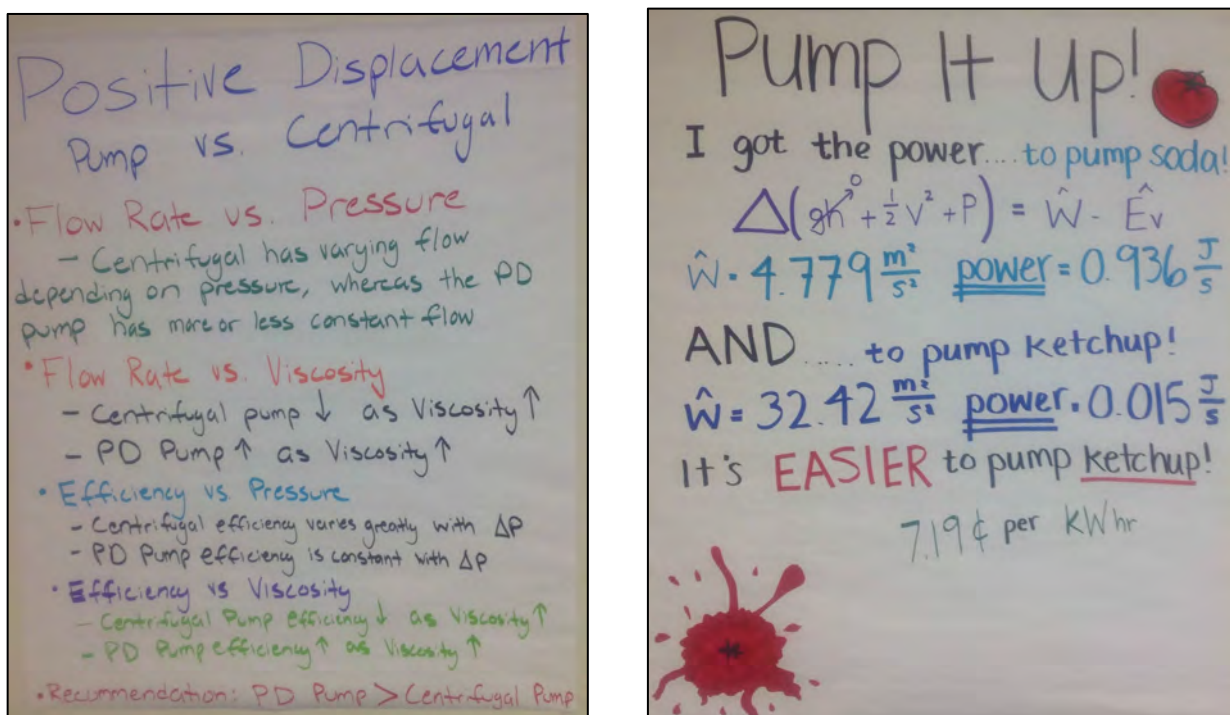 Positive Displacement
Pump vs. Centrifugal
• Flow Rate vs. Pressure
– Centrifugal has varying flow
depending on pressure, whereas the PD
pump has more or less constant flow
• Flow Rate vs. Viscosity
– Centrifugal pump ↓ as Viscosity ↑
– PD Pump ↑ as Viscosity ↑
• Efficiency vs. Pressure
– Centrifugal efficiency varies greatly with ΔP
– PD Pump efficiency is constant with ΔP
• Efficiency vs Viscosity
– Centrifugal Pump efficiency ↓ as Viscosity ↑
– PD Pump efficiency ↑ as Viscosity ↑
• Recommendation: PD Pump > Centrifugal Pump
Pump It Up!
I got the power.... to pump soda!
Δ(gh↗0 + ½ v² + P) = Ŵ - Êv
Ŵ = 4.779 m²/s² power = 0.936 J/s
AND..... to pump ketchup!
Ŵ = 32.42 m²/s² power = 0.015 J/s
It's EASIER to pump ketchup!
7.19¢ per KWhr